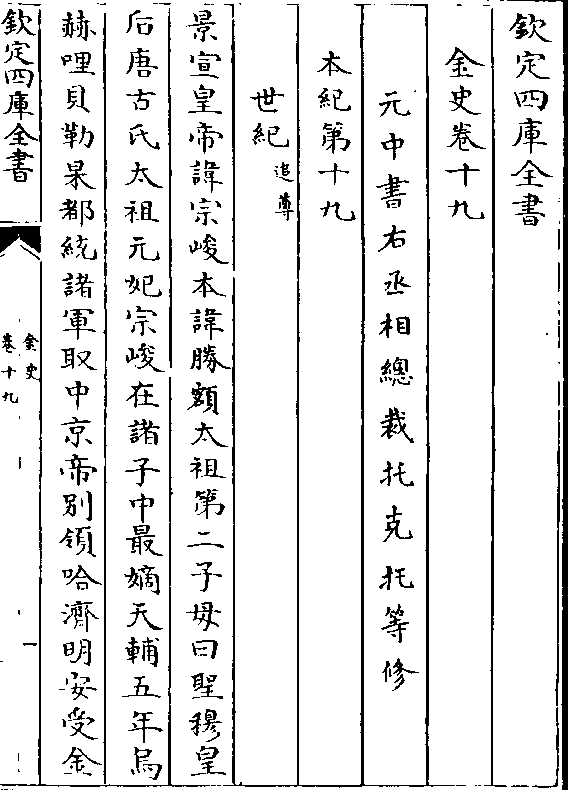 欽定四庫全書
金史卷十九
元中書右丞相總裁托克托等修
本紀第十九
世紀追尊
景宣皇帝諱宗峻本諱勝額太祖第二子母曰聖穆皇
后唐古氏太祖元妃宗峻在諸子中最嫡天輔五年烏
赫哩貝勒杲都統諸軍取中京帝别領哈濟明安受金
欽定四庫全書
金史
卷十九
一